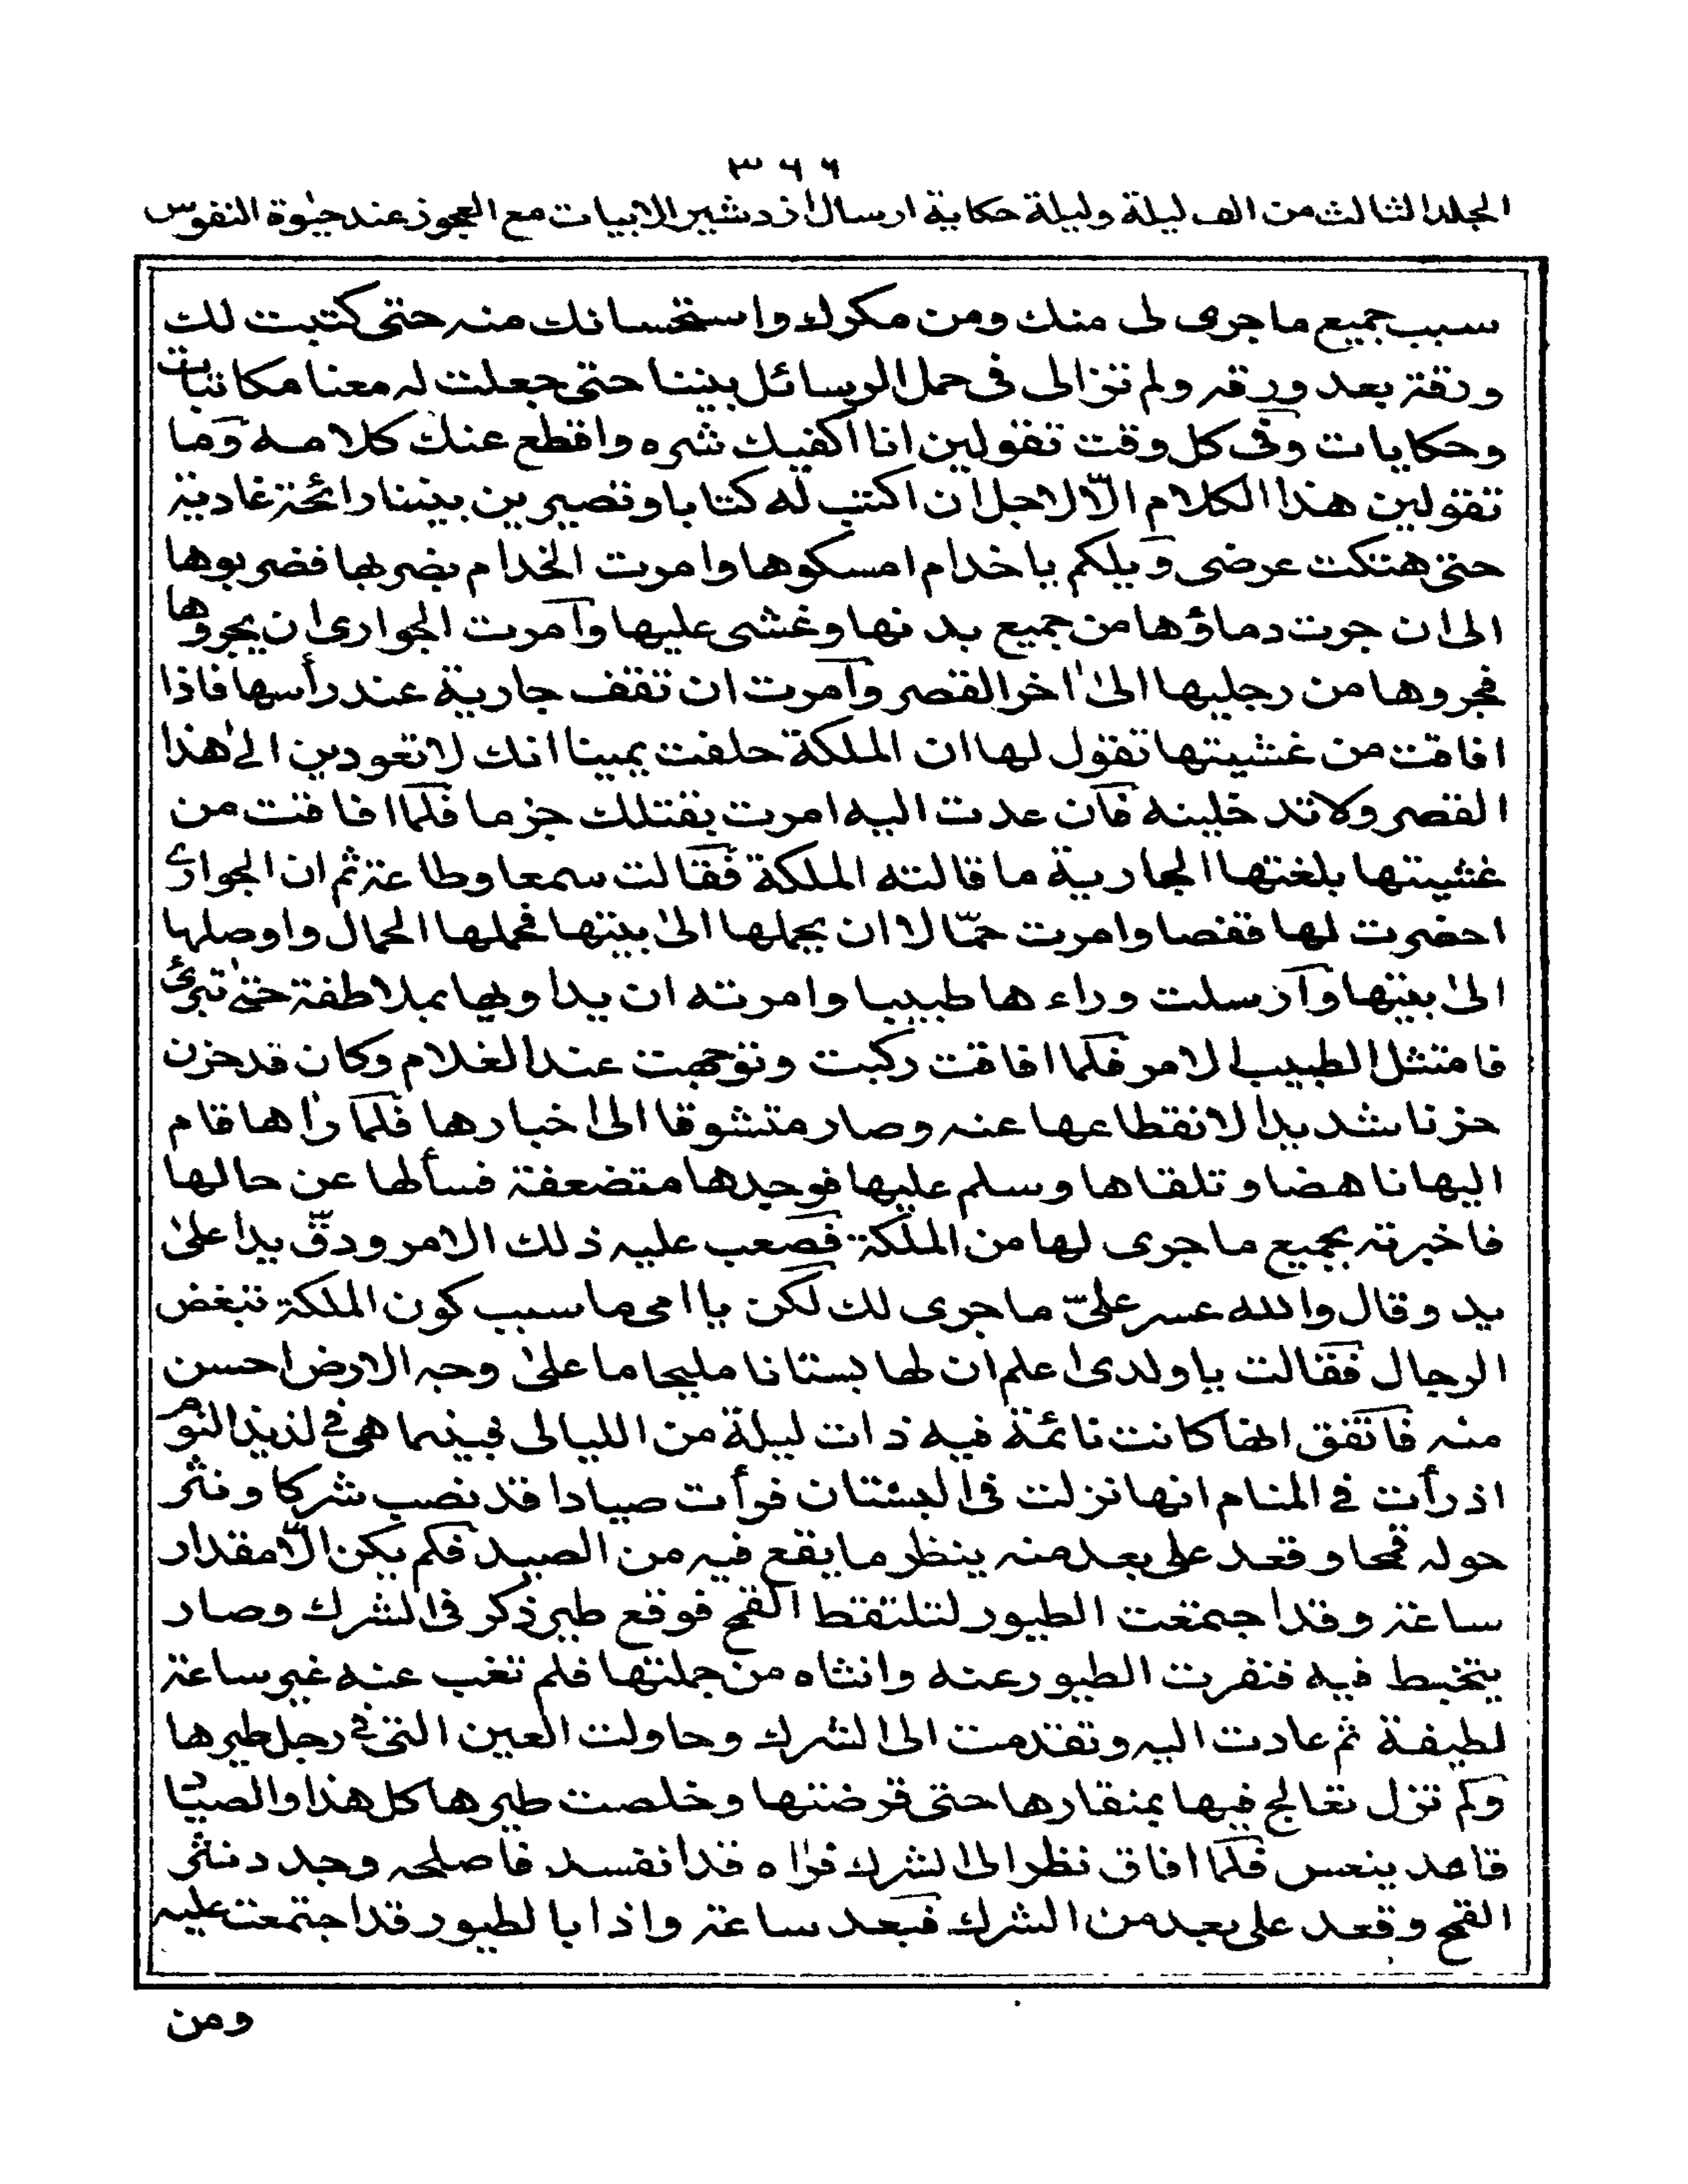 ٣٦٦
الجلد الثالث من الف ليلة وليلة حكاية ارسال ازدشير الابيات مع العجوز عند حيٰوة النفوس
سبب جميع ما جرى لى منك ومن مكرك واستحسانك منه حتى كتبت لك
ورقة بعد ورقه ولم تزالى فى حمل الرسائل بيننا حتى جعلت له معنا مكاتبات
وحكايات وفى كل وقت تقولين انا اكفيك شره واقطع عنك كلامه وما
تقولين هذا الكلام الّا لاجل ان اكتب له كتابا وتصيرين بيننا رائحة غادية
حتى هتكت عرضى ويلكم يا خدام امسكوها وامرت الخدام بضربها فضربوها
الى ان جرت دماؤها من جميع بدنها وغشى عليها وآمرت الجوارى ان يجروها
فجروها من رجليها الىٰ اٰخر القصر وآمرت ان تقف جارية عند رأسها فاذا
افاقت من غشيتها تقول لها ان الملكة حلفت يمينا انك لا تعودين الىٰ هذا
القصر ولا تدخلينه فآن عدت اليه امرت بقتلك جزما فلمّا افاقت من
غشيتها بلغتها الجارية ما قالته الملكة فقالت سمعا وطاعة ثم ان الجوارى
احضرت لها قفصا وامرت حمّالا ان يحملها الىٰ بيتها فحملها الحمال واوصلها
الىٰ بيتها وآرسلت وراءها طبيبا وامرته ان يداويها بملاطفة حتىٰ تبرئ
فامتثل الطبيب الامر فلمّا افاقت ركبت وتوجهت عند الغلام وكان قد حزن
حزنا شديدا لانقطاعها عنه وصار متشوقا الىٰ اخبارها فلمّا رأٰها قام
اليها ناهضا وتلقاها وسلم عليها فوجدها متضعفة فسألها عن حالها
فاخبرته بجميع ما جرى لها من الملكة فصعب عليه ذلك الامر ودقّ يدا علىٰ
يد وقال والله عسر علىّ ما جرى لك لكن يا امى ما سبب كون الملكة تبغض
الرجال فقالت يا ولدى اعلم ان لها بستانا مليحا ما علىٰ وجه الارض احسن
منه فاتّفق انها كانت نائمة فيه ذات ليلة من الليالى فبينما هى فى لذيذ النوم
اذ رأت فى المنام انها نزلت فى البستان فرأت صيادا قد نصب شركا ونثر
حوله قمحا وقعد على بعد منه ينظر ما يقع فيه من الصيد فلم يكن الّا مقدار
ساعة وقد اجتمعت الطيور لتلتقط القمح فوقع طير ذكر فى الشرك وصار
يتخبط فيه فنفرت الطيور عنه وانثاه من جملتها فلم تغب عنه غير ساعة
لطيفة ثم عادت اليه وتقدمت الى الشرك وحاولت العين التى فى رجل طيرها
ولم تزل تعالج فيها بمنقارها حتى قرضتها وخلصت طيرها كل هذا والصياد
قاعد ينعس فلمّا افاق نظر الى الشرك فرأٰه قد انفسد فاصلحه وجدد نثر
القمح وقعد على بعد من الشرك فبعد ساعة واذا بالطيور قد اجتمعت عليه
ومن